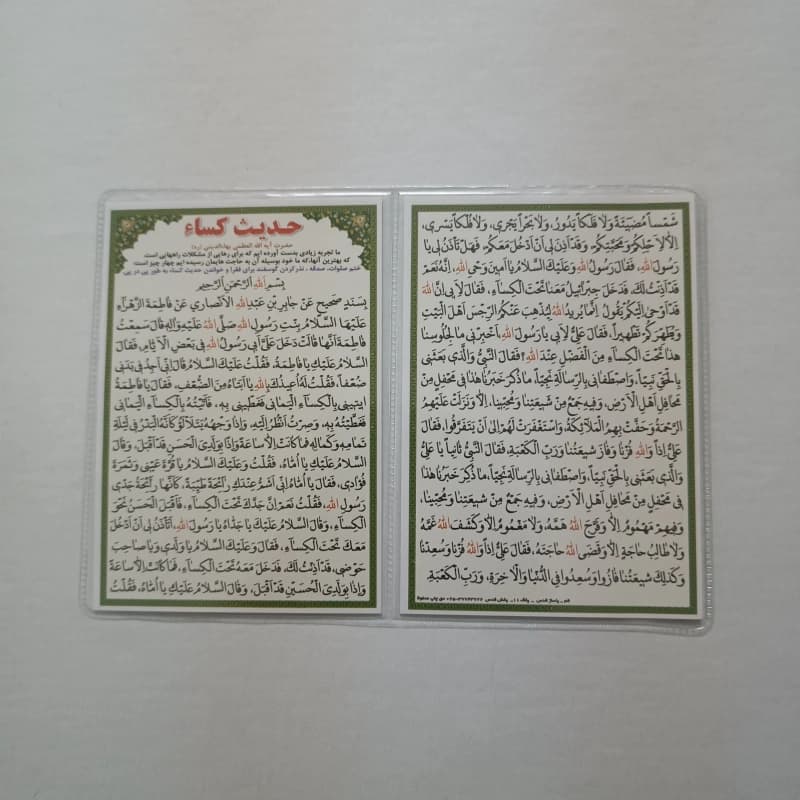 حدیث کساء
حضرت آیه الله العظمی بهاءالدینی (ره)
ما تجربه زیادی بدست آورده ایم که برای رهایی از مشکلات راههایی است.
که بهترین آنها،که ما خود بوسیله آن به حاجت هایمان رسیده ایم چهار چیز است:
ختم صلوات، صدقه ، نذر کردن گوسفند برای فقرا و خواندن حدیث کساء به طور پی در پی
بِسْمِ اللهِ الرَّحْمنِ الرَّحیمِ
بِسَنَدٍ صَحیحٍ عَنْ جابِرِ بْنِ عَبْدِاللهِ الْاَنْصاریِ عَنْ فاطِمَةَ الزَّهْرآءِ
عَلَیْهَا السَّلامُ بِنْتِ رَسُولِ اللهِ صَلَّی اللهُ عَلَیْهِ وَآلِهِ قالَ سَمِعْتُ
فاطِمَةَ اَنَّها قالَتْ دَخَلَ عَلَیَّ اَبی رَسُولُ اللهِ فی بَعْضِ الْاَیّامِ، فَقالَ
السَّلامُ عَلَیْكِ یا فاطِمَةُ، فَقُلْتُ عَلَیْكَ السَّلامُ قالَ اِنّی اَجِدُ فی بَدَنی
ضُعْفاً، فَقُلْتُ لَهُ اُعیذُكَ بِاللهِ یا اَبَتاهُ مِنَ الضَّعْفِ، فَقالَ یا فاطِمَةُ
ایتینی بِالْکِسآءِ الْیَمانی فَغَطّینی بِهِ، فَاَتَیْتُهُ بِالْکِسآءِ الْیَمانی
فَغَطَّیْتُهُ بِهِ، وَصِرْتُ اَنْظُرُ اِلَیْهِ، وَاِذا وَجْهُهُ یَتَلَأْلَؤُ کَاَنَّهُ الْبَدْرُ فی لَیْلَةِ
تَمامِهِ وَکَمالِهِ فَما کانَتْ اِلّا ساعَةً وَاِذا بِوَلَدِیَ الْحَسَنِ قَدْ اَقْبَلَ، وَقالَ
السَّلامُ عَلَیْكِ یا اُمّاهُ، فَقُلْتُ وَعَلَیْكَ السَّلامُ یا قُرَّةَ عَیْنی وَثَمَرَةَ
فُؤادی، فَقالَ یا اُمّاهُ اِنّی اَشَمُّ عِنْدَكِ رآئِحَةً طَیِّبَةً، کَاَنَّها رآئِحَةُ جَدّی
رَسُولِ اللهِ، فَقُلْتُ نَعَمْ اِنَّ جَدَّكَ تَحْتَ الْکِسآءِ، فَاَقْبَلَ الْحَسَنُ نَحْوَ
الْکِسآءِ، وَقالَ السَّلامُ عَلَیْكَ یا جَدّاهُ یا رَسُولَ اللهِ، اَتَأْذَنُ لی اَنْ اَدْخُلَ
مَعَكَ تَحْتَ الْکِسآءِ، فَقالَ وَعَلَیْكَ السَّلامُ یا وَلَدی وَیا صاحِبَ
حَوْضی، قَدْ اَذِنْتُ لَكَ، فَدَخَلَ مَعَهُ تَحْتَ الْکِسآءِ، فَما کانَتْ اِلّا ساعَةً
وَاِذا بِوَلَدِیَ الْحُسَیْنِ قَدْ اَقْبَلَ، وَقالَ السَّلامُ عَلَیْكِ یا اُمّاهُ، فَقُلْتُ
شَمْساً مُضیئَةً وَلا فَلَکاً یَدُورُ، وَلا بَحْراً یَجْری، وَلا فُلْکاً یَسْری،
اِلّا لِاَجْلِکُمْ وَمَحَبَّتِکُمْ، وَقَدْ اَذِنَ لی اَنْ اَدْخُلَ مَعَکُمْ، فَهَلْ تَأْذَنُ لی یا
رَسُولَ اللهِ، فَقالَ رَسُولُ اللهِ وَعَلَیْكَ السَّلامُ یا اَمینَ وَحْیِ اللهِ، اِنَّهُ نَعَمْ
قَدْ اَذِنْتُ لَكَ، فَدَخَلَ جِبْرآئیلُ مَعَنا تَحْتَ الْکِسآءِ، فَقالَ لِاَبی اِنَّ اللهَ
قَدْ اَوْحی اِلَیْکُمْ یَقُولُ اِنَّما یُریدُ اللهُ لِیُذْهِبَ عَنْکُمُ الرِّجْسَ اَهْلَ الْبَیْتِ
وَیُطَهِّرَکُمْ تَطْهیراً، فَقالَ عَلِیٌّ لِاَبی یا رَسُولَ اللهِ اَخْبِرْنی ما لِجُلُوسِنا
هذا تَحْتَ الْکِسآءِ مِنَ الْفَضْلِ عِنْدَ اللهِ؟ فَقالَ النَّبِیُّ وَالَّذی بَعَثَنی
بِالْحَقِّ نَبِیّاً، وَاصْطَفانی بِالرِّسالَةِ نَجِیّاً، ما ذُکِرَ خَبَرُنا هذا فی مَحْفِلٍ مِنْ
مَحافِلِ اَهْلِ الْاَرْضِ، وَفیهِ جَمْعٌ مِنْ شیعَتِنا وَمُحِبّینا، اِلّا وَنَزَلَتْ عَلَیْهِمُ
الرَّحْمَةُ وَحَفَّتْ بِهِمُ الْمَلآئِکَةُ، وَاسْتَغْفَرَتْ لَهُمْ اِلی اَنْ یَتَفَرَّقُوا، فَقالَ
عَلِیٌّ اِذاً وَاللهِ فُزْنا وَفازَ شیعَتُنا وَرَبِّ الْکَعْبَةِ، فَقالَ النَّبِیُّ ثانِیاً یا عَلِیُّ
وَالَّذی بَعَثَنی بِالْحَقِّ نَبِیّاً، وَاصْطَفانی بِالرِّسالَةِ نَجِیّاً، ما ذُکِرَ خَبَرُنا هذا
فی مَحْفِلٍ مِنْ مَحافِلِ اَهْلِ الْاَرْضِ، وَفیهِ جَمْعٌ مِنْ شیعَتِنا وَمُحِبّینا،
وَفیهِمْ مَهْمُومٌ اِلّا وَفَرَّجَ اللهُ هَمَّهُ، وَلا مَغْمُومٌ اِلّا وَکَشَفَ اللهُ غَمَّهُ
وَلا طالِبُ حاجَةٍ اِلّا وَقَضَی اللهُ حاجَتَهُ، فَقالَ عَلِیٌّ اِذاً وَاللهِ فُزْنا وَسُعِدْنا
وَکَذلِكَ شیعَتُنا فازُوا وَسُعِدُوا فِی الدُّنْیا وَالْآخِرَةِ، وَرَبِّ الْکَعْبَةِ.